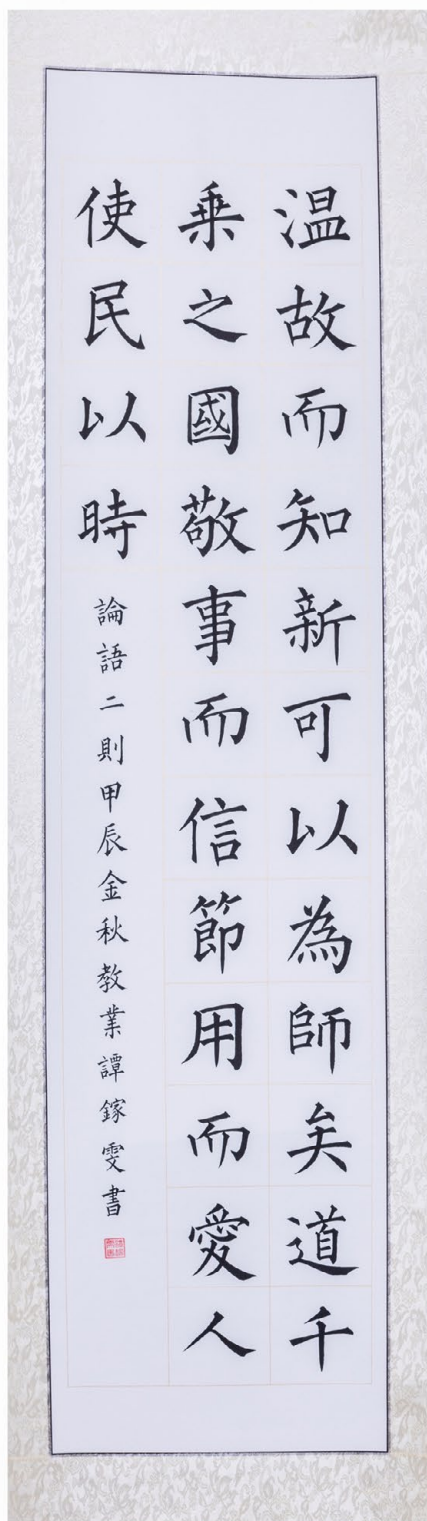 温故而知新可以為師矣道千
乗之國敬事而信節用而愛人
使民以時
論語二則甲辰金秋教業譚鎵雯書